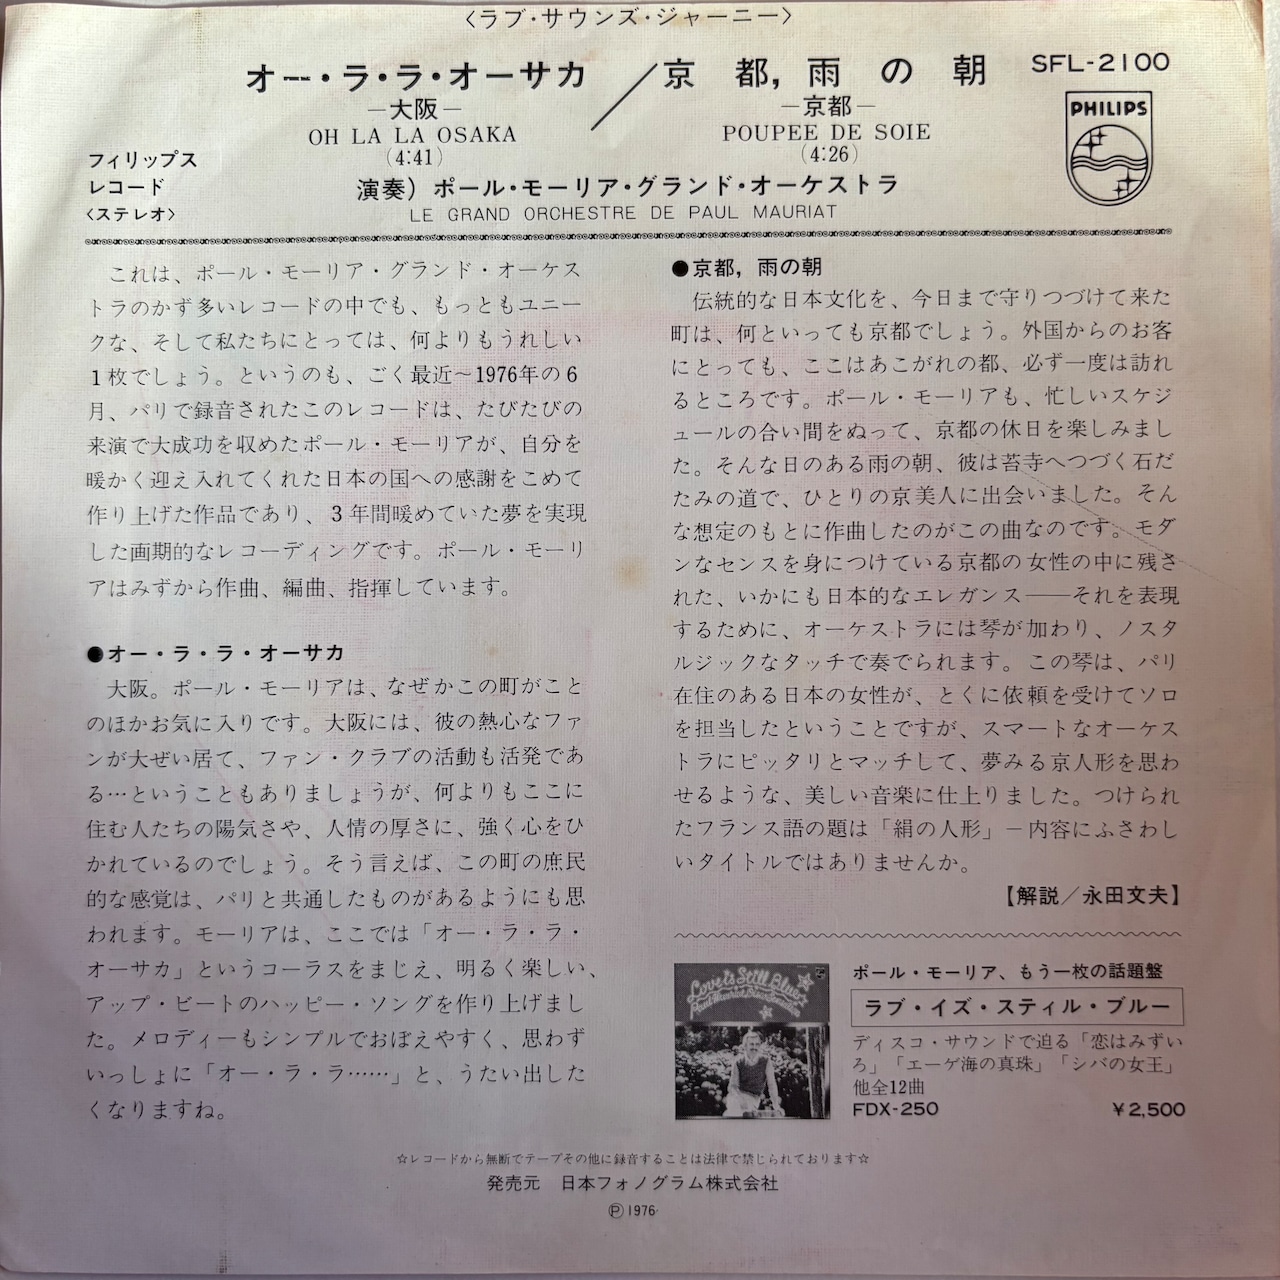 〈ラブ・サウンズ・ジャーニー〉
オー・ラ・ラ・オーサカ／京都，雨の朝
SFL-2100
―大阪―
―京都―
OH LA LA OSAKA
POUPEE DE SOIE
(4:41)
(4:26)
PHILIPS
フィリップス
レコード
〈ステレオ〉
演奏）ポール・モーリア・グランド・オーケストラ
LE GRAND ORCHESTRE DE PAUL MAURIAT
これは、ポール・モーリア・グランド・オーケス
トラのかず多いレコードの中でも、もっともユニー
クな、そして私たちにとっては、何よりもうれしい
1枚でしょう。というのも、ごく最近～1976年の6
月、パリで録音されたこのレコードは、たびたびの
来演で大成功を収めたポール・モーリアが、自分を
暖かく迎え入れてくれた日本の国への感謝をこめて
作り上げた作品であり、3年間暖めていた夢を実現
した画期的なレコーディングです。ポール・モーリ
アはみずから作曲、編曲、指揮しています。
●オー・ラ・ラ・オーサカ
大阪。ポール・モーリアは、なぜかこの町がこと
のほかお気に入りです。大阪には、彼の熱心なファ
ンが大ぜい居て、ファン・クラブの活動も活発であ
る…ということもありましょうが、何よりもここに
住む人たちの陽気さや、人情の厚さに、強く心をひ
かれているのでしょう。そう言えば、この町の庶民
的な感覚は、パリと共通したものがあるようにも思
われます。モーリアは、ここでは「オー・ラ・ラ・
オーサカ」というコーラスをまじえ、明るく楽しい、
アップ・ビートのハッピー・ソングを作り上げまし
た。メロディーもシンプルでおぼえやすく、思わず
いっしょに「オー・ラ・ラ……」と、うたい出した
くなりますね。
●京都，雨の朝
伝統的な日本文化を、今日まで守りつづけて来た
町は、何といっても京都でしょう。外国からのお客
にとっても、ここはあこがれの都、必ず一度は訪れ
るところです。ポール・モーリアも、忙しいスケジ
ュールの合い間をぬって、京都の休日を楽しみまし
た。そんな日のある雨の朝、彼は苔寺へつづく石だ
たみの道で、ひとりの京美人に出会いました。そん
な想定のもとに作曲したのがこの曲なのです。モダ
ンなセンスを身につけている京都の女性の中に残さ
れた、いかにも日本的なエレガンス――それを表現
するために、オーケストラには琴が加わり、ノスタ
ルジックなタッチで奏でられます。この琴は、パリ
在住のある日本の女性が、とくに依頼を受けてソロ
を担当したということですが、スマートなオーケス
トラにピッタリとマッチして、夢みる京人形を思わ
せるような、美しい音楽に仕上りました。つけられ
たフランス語の題は「絹の人形」－内容にふさわし
いタイトルではありませんか。
【解説／永田文夫】
Love is Still Blue
ポール・モーリア、もう一枚の話題盤
ラブ・イズ・スティル・ブルー
ディスコ・サウンドで迫る「恋はみずい
ろ」「エーゲ海の真珠」「シバの女王」
他全12曲
FDX-250
￥2,500
☆レコードから無断でテープその他に録音することは法律で禁じられております☆
発売元　日本フォノグラム株式会社
Ⓟ1976